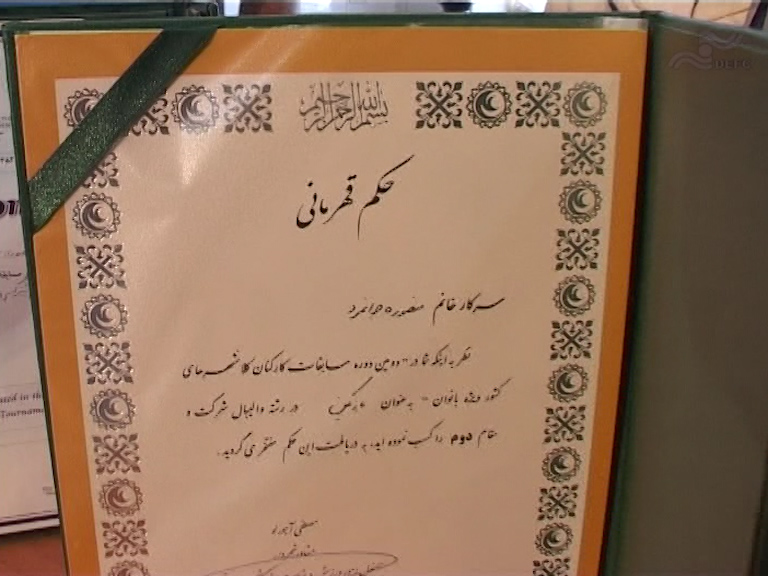 بسم الله الرحمن الرحیم
حکم قهرمانی
سرکار خانم منصوره جوانمرد
نظر به اینکه شما در " دومین دوره مسابقات کارکنان کلانشهرهای
کشور ویژه بانوان " به عنوان در رشته والیبال شرکت و
مقام دوم را کسب نموده اید، به دریافت این حکم مفتخر می گردید.
مصطفی آجورلو
ated in th
Tourname
DEFC